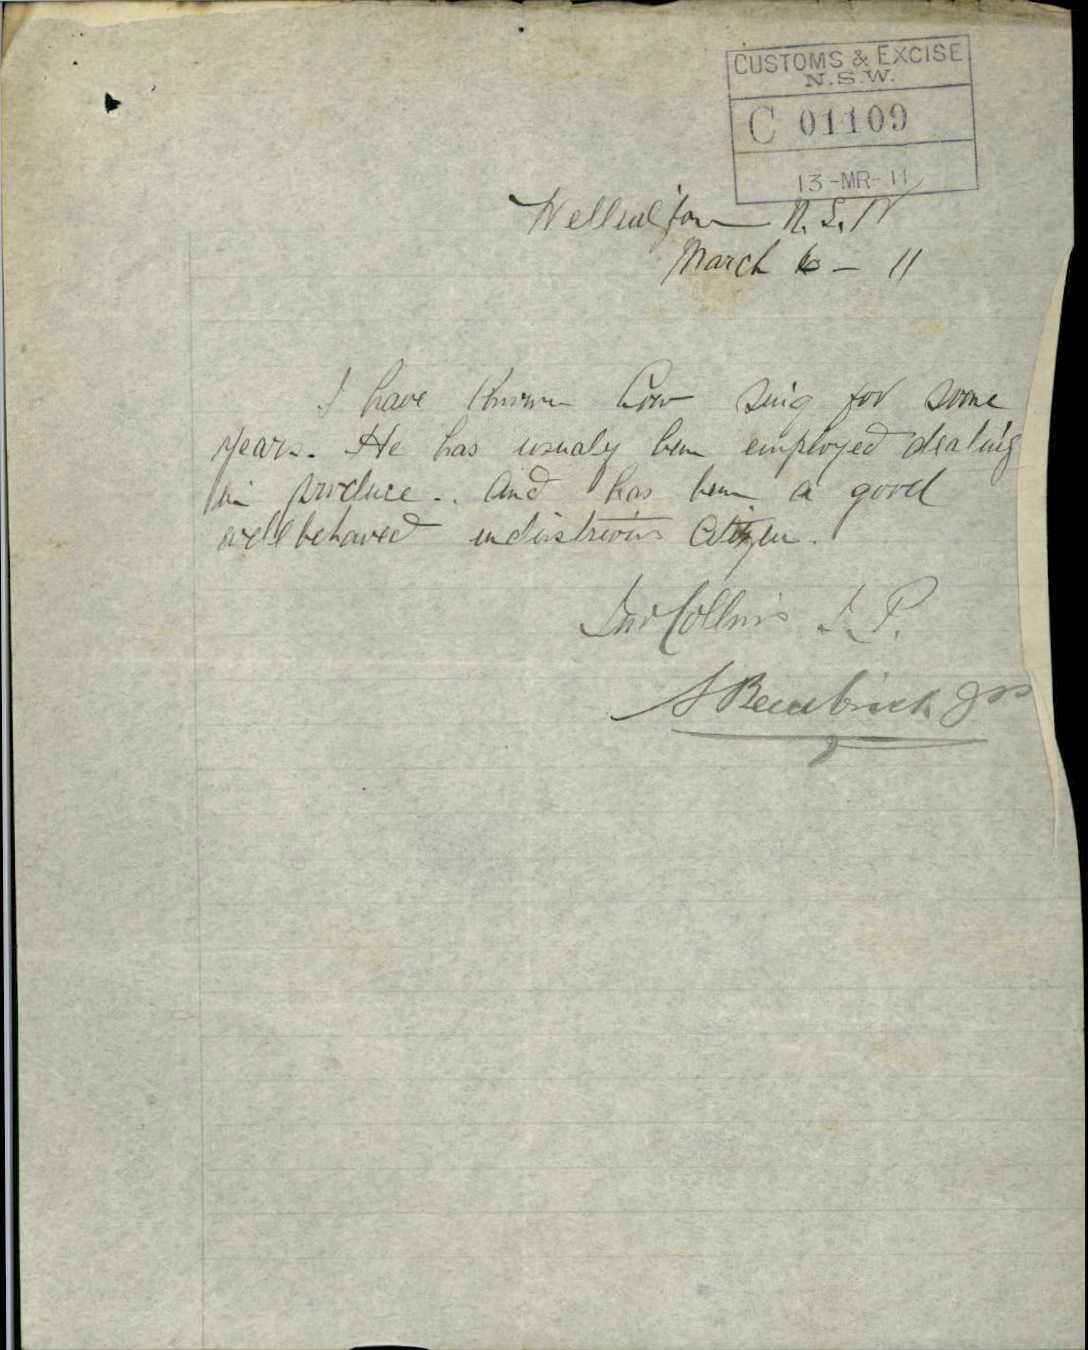 CUSTOMS & EXCISE
N.S.W.
C 01109
13-MR-11
Wellington N.S.W
March 6 – 11
I have known Sing for some
years. He has usualy been employed dealing
in produce.. and has been a good
well behaved industrious Citizen.
Jno Collins J.P.